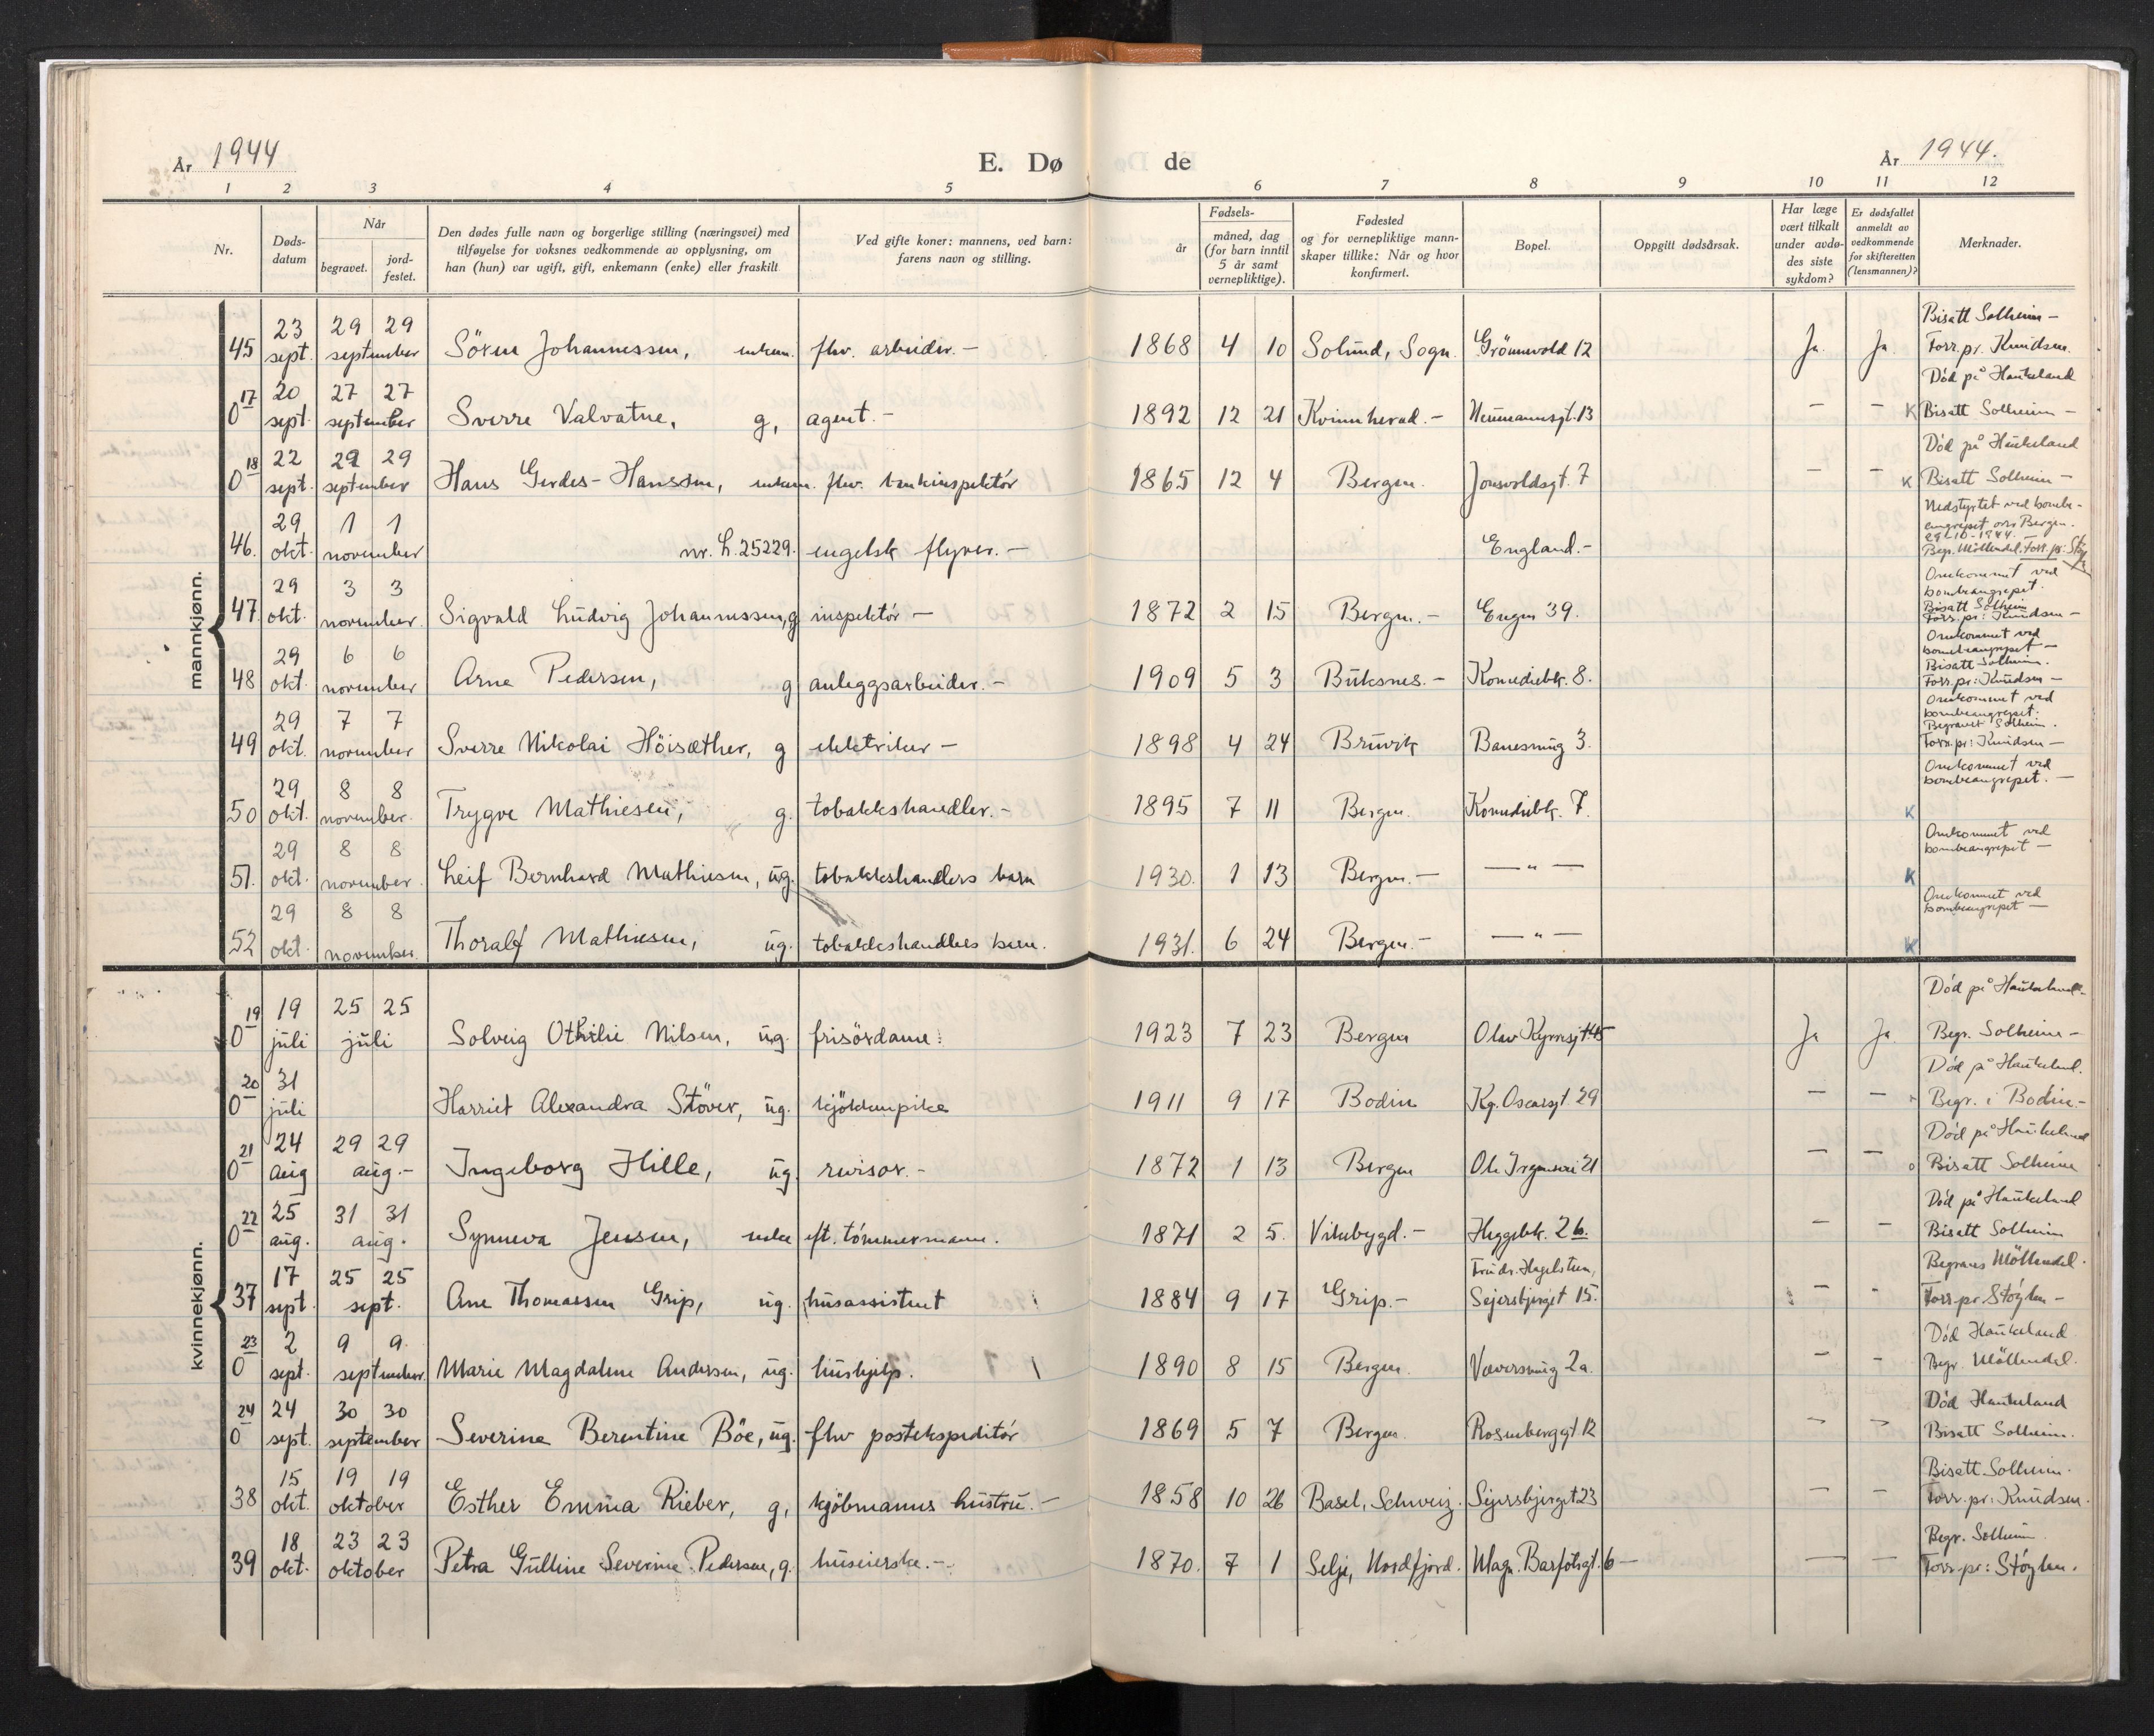 År 1944
E. Dø de
År 1944.
1 2 3 4 5 6 7 8 9 10 11 12
Nr.
Døds-
datum
Når
begravet.
jord-
festet.
Den dødes fulle navn og borgerlige stilling (næringsvei) med
tilføyelse for voksnes vedkommende av opplysning, om
han (hun) var ugift, gift, enkemann (enke) eller fraskilt
Ved gifte koner: mannens, ved barn:
farens navn og stilling.
Fødsels-
år
måned, dag
(for barn inntil
5 år samt
vernepliktige).
Fødested
og for vernepliktige mann-
skaper tillike: Når og hvor
konfirmert.
Bopel.
Oppgitt dødsårsak.
Har læge
vært tilkalt
under avdø-
des siste
sykdom?
Er dødsfallet
anmeldt av
vedkommende
for skifteretten
(lensmannen)?
Merknader.
mannkjønn.
23 29 29 Bisatt Solheim –
45 sept. september Sören Johannessen, enkem. fhv. arbeider. – 1868 4 10 Solund, Sogn. Grönnevold 12 Ja. Ja. Forr. pr. Knudsen.
17 20 27 27 Död på Haukeland
0 sept. september Sverre Valvatne, g, agent. – 1892 12 21 Kvinnherad. – Neumannsgt. 13 – – K Bisatt Solheim –
18 22 29 29 Död på Haukeland
0 sept. september Hans Gerdes-Hanssen, enkem. fhv. bankinspektör 1865 12 4 Bergen. Jonsvoldsgt. 7 – – K Bisatt Solheim –
29 1 1 Nedstyrtet ved bombe-
angrepet over Bergen.
29-10-1944. –
46. okt. november nr. L. 25229. engelsk flyver. – England. – Begr. Möllendal. Forr. pr: Stöy
29 3 3 Omkommet ved
bombeangrepet.
Bisatt Solheim
47. okt. november. Sigvald Ludvig Johannessen, g inspektör – 1872 2 15 Bergen. – Engen 39. Forr. pr: Knudsen –
29 6 6 Omkommet ved
bombeangrepet –
Bisatt Solheim.
48 okt. november Arne Pedersen, g anleggsarbeider. – 1909 5 3 Buksnes. – Komediebk. 8. Forr. pr: Knudsen –
29 7 7 Omkommet ved
bombeangrepet.
Begravet Solheim.
49 okt. november Sverre Nikolai Höisæther, g elektriker – 1898 4 24 Bruvik Banesmug 3. Forr. pr: Knudsen –
29 8 8 Omkommet ved
bombeangrepet. –
50 okt. november. Trygve Mathiesen, g. tobakkshandler. – 1895 7 11 Bergen. Komediebk. 7. K
29 8 8 Omkommet ved
bombeangrepet –
51. okt. november. Leif Bernhard Mathiesen, ug. tobakkshandlers barn 1930. 1 13 Bergen. – — " — K
29 8 8 Omkommet ved
bombeangrepet –
52 okt. november. Thoralf Mathiesen, ug. tobakkshandlers barn. 1931. 6 24 Bergen. – — " — K
kvinnekjønn.
19 19 25 25 Död på Haukeland –
0 juli juli Solveig Othilie Nilsen, ug. frisördame. 1923 7 23 Bergen Olav Kyrresgt 45 Ja Ja Begr. Solheim –
20 31 Död på Haukeland.
0 juli Harriet Alexandra Stöver, ug. kjökkenpike 1911 9 17 Bodin Kg. Oscarsgt. 29 – – Begr. i Bodin. –
21 24 29 29 Död på Haukeland
0 aug aug. – Ingeborg Hille, ug. revisor. – 1872 1 13 Bergen Ole Irgensvei 21 – – o Bisatt Solheim
22 25 31 31 Död på Haukeland
0 aug. aug. Synneva Jensen, enke eft. tömmermann. 1871 2 5. Vikebygd. – Heggebk. 26. – – Bisatt Solheim
17 25 25 Frudr. Hagelsteen, Begraves Möllendal.
37 sept. sept. Ane Thomassen Grip, ug. husassistent 1884 9 17 Grip. – Sejersbjerget 15. – – Forr. pr. Stöylen –
23 2 9 9. Död Haukeland
0 sept. september. Marie Magdalene Andersen, ug. hushjelp. 1890 8 15 Bergen. Væversmug 2a. – – Begr. Möllendal.
24 24 30 30 Död Haukeland
0 sept. september Severine Berentine Böe, ug. fhv postekspeditör 1869 5 7 Bergen. Rosenberggt. 12 – – Bisatt Solheim.
15 19 19 Bisatt Solheim.
38 okt. oktober Esther Emma Rieber, g, kjöbmanns hustru. – 1858 10 26 Basel, Schweiz. Sejersbjerget 23 – – Forr. pr: Knudsen.
18 23 23 Begr. Solheim
39 okt. oktober Petra Gulline Severine Pedersen, g. huseierske. – 1870. 7 1 Selje, Nordfjord. Magn. Barfotsgt. 6 – – – Forr. pr: Stöylen.